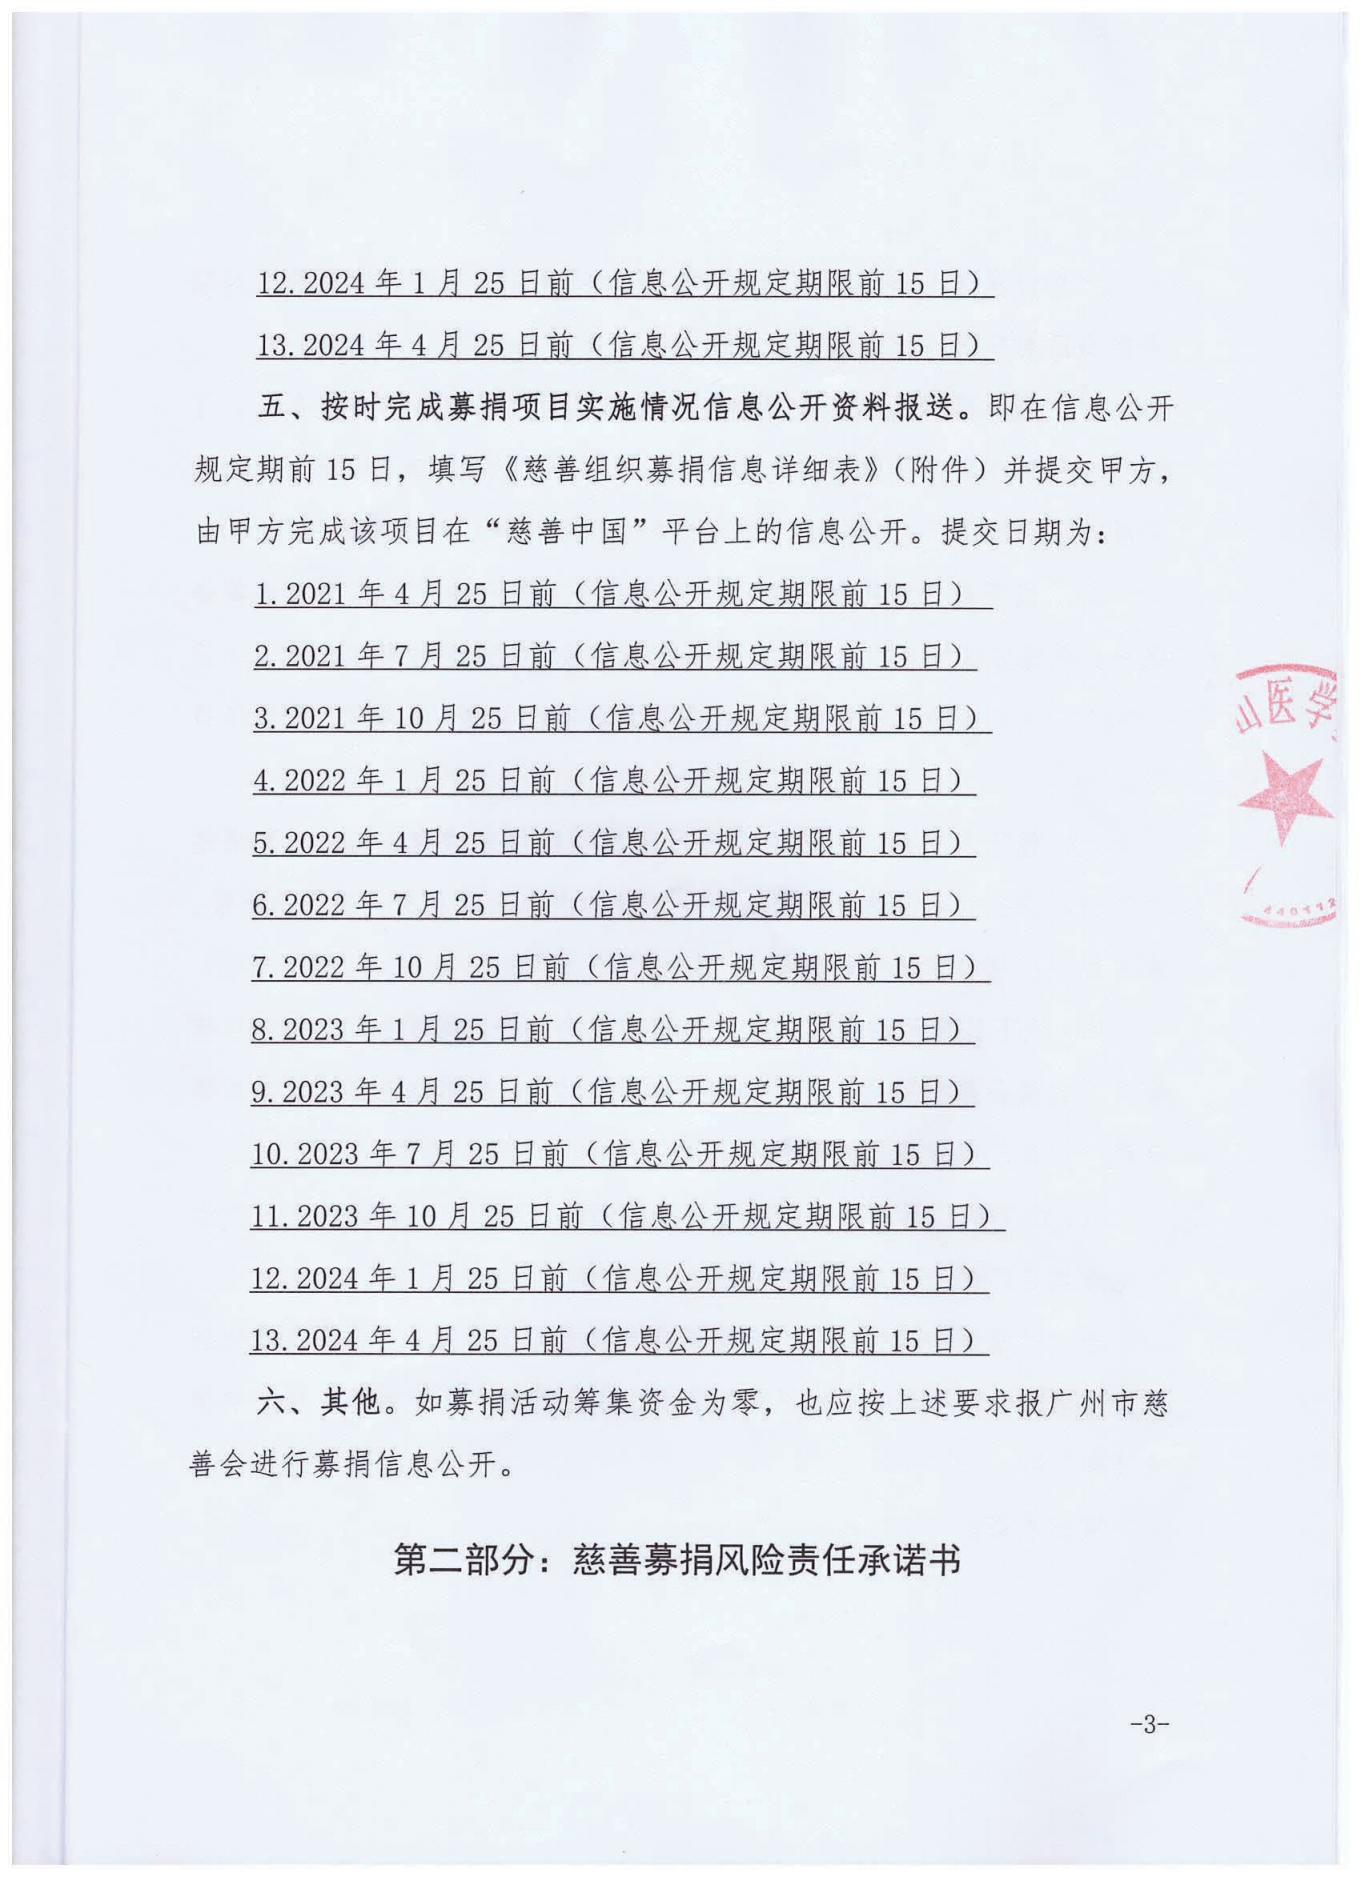 12.2024 年 1 月 25 日前（信息公开规定期限前 15 日）
13.2024 年 4 月 25 日前（信息公开规定期限前 15 日）
五、按时完成募捐项目实施情况信息公开资料报送。即在信息公开
规定期前 15 日，填写《慈善组织募捐信息详细表》（附件）并提交甲方，
由甲方完成该项目在“慈善中国”平台上的信息公开。提交日期为：
1.2021 年 4 月 25 日前（信息公开规定期限前 15 日）
2.2021 年 7 月 25 日前（信息公开规定期限前 15 日）
3.2021 年 10 月 25 日前（信息公开规定期限前 15 日）
4.2022 年 1 月 25 日前（信息公开规定期限前 15 日）
5.2022 年 4 月 25 日前（信息公开规定期限前 15 日）
6.2022 年 7 月 25 日前（信息公开规定期限前 15 日）
7.2022 年 10 月 25 日前（信息公开规定期限前 15 日）
8.2023 年 1 月 25 日前（信息公开规定期限前 15 日）
9.2023 年 4 月 25 日前（信息公开规定期限前 15 日）
10.2023 年 7 月 25 日前（信息公开规定期限前 15 日）
11.2023 年 10 月 25 日前（信息公开规定期限前 15 日）
12.2024 年 1 月 25 日前（信息公开规定期限前 15 日）
13.2024 年 4 月 25 日前（信息公开规定期限前 15 日）
六、其他。如募捐活动筹集资金为零，也应按上述要求报广州市慈
善会进行募捐信息公开。
第二部分：慈善募捐风险责任承诺书
-3-
山医学
440112